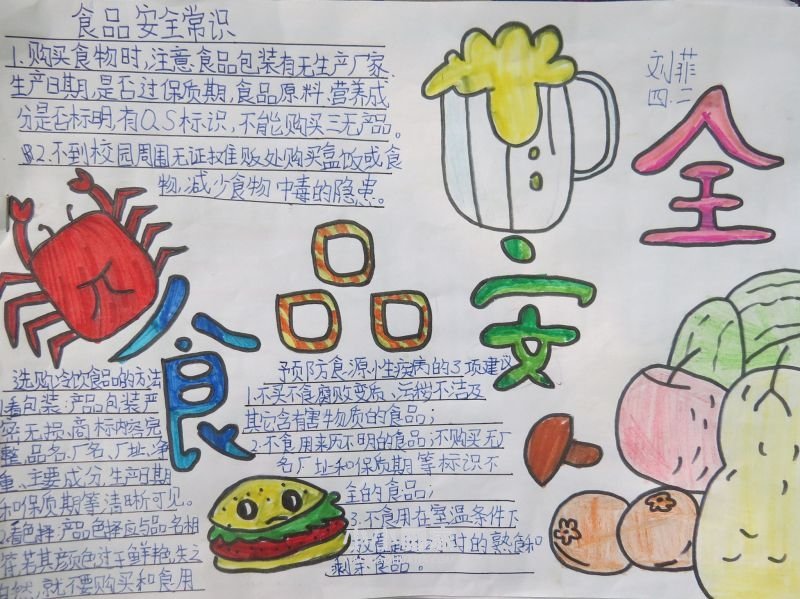 食品安全常识
1.购买食物时,注意食品包装有无生产厂家,
生产日期,是否过保质期,食品原料.营养成
分是否标明,有QS标识,不能购买三无产品。
2.不到校园周围无证摊贩处购买盒饭或食
物,减少食物中毒的隐患。
刘菲
四.二
食品安全
选购冷饮食品的方法
1.看包装,产品包装严
密无损,商标内容完
整,品名、厂名、厂址、净
重、主要成分,生产日期
和保质期等清晰可见。
2.看色择:产品色择应与品名相
符,若其颜色过于鲜艳,失之
自然,就不要购买和食用
予页防食源小生疾病的3项建议
1.不买不食腐败变质、污秽不洁及
其它含有害物质的食品;
2.不食用来历不明的食品;不购买无厂
名厂址和保质期等标识不
全的食品;
3.不食用在室温条件下
放置 时的熟食和
剩余食品。